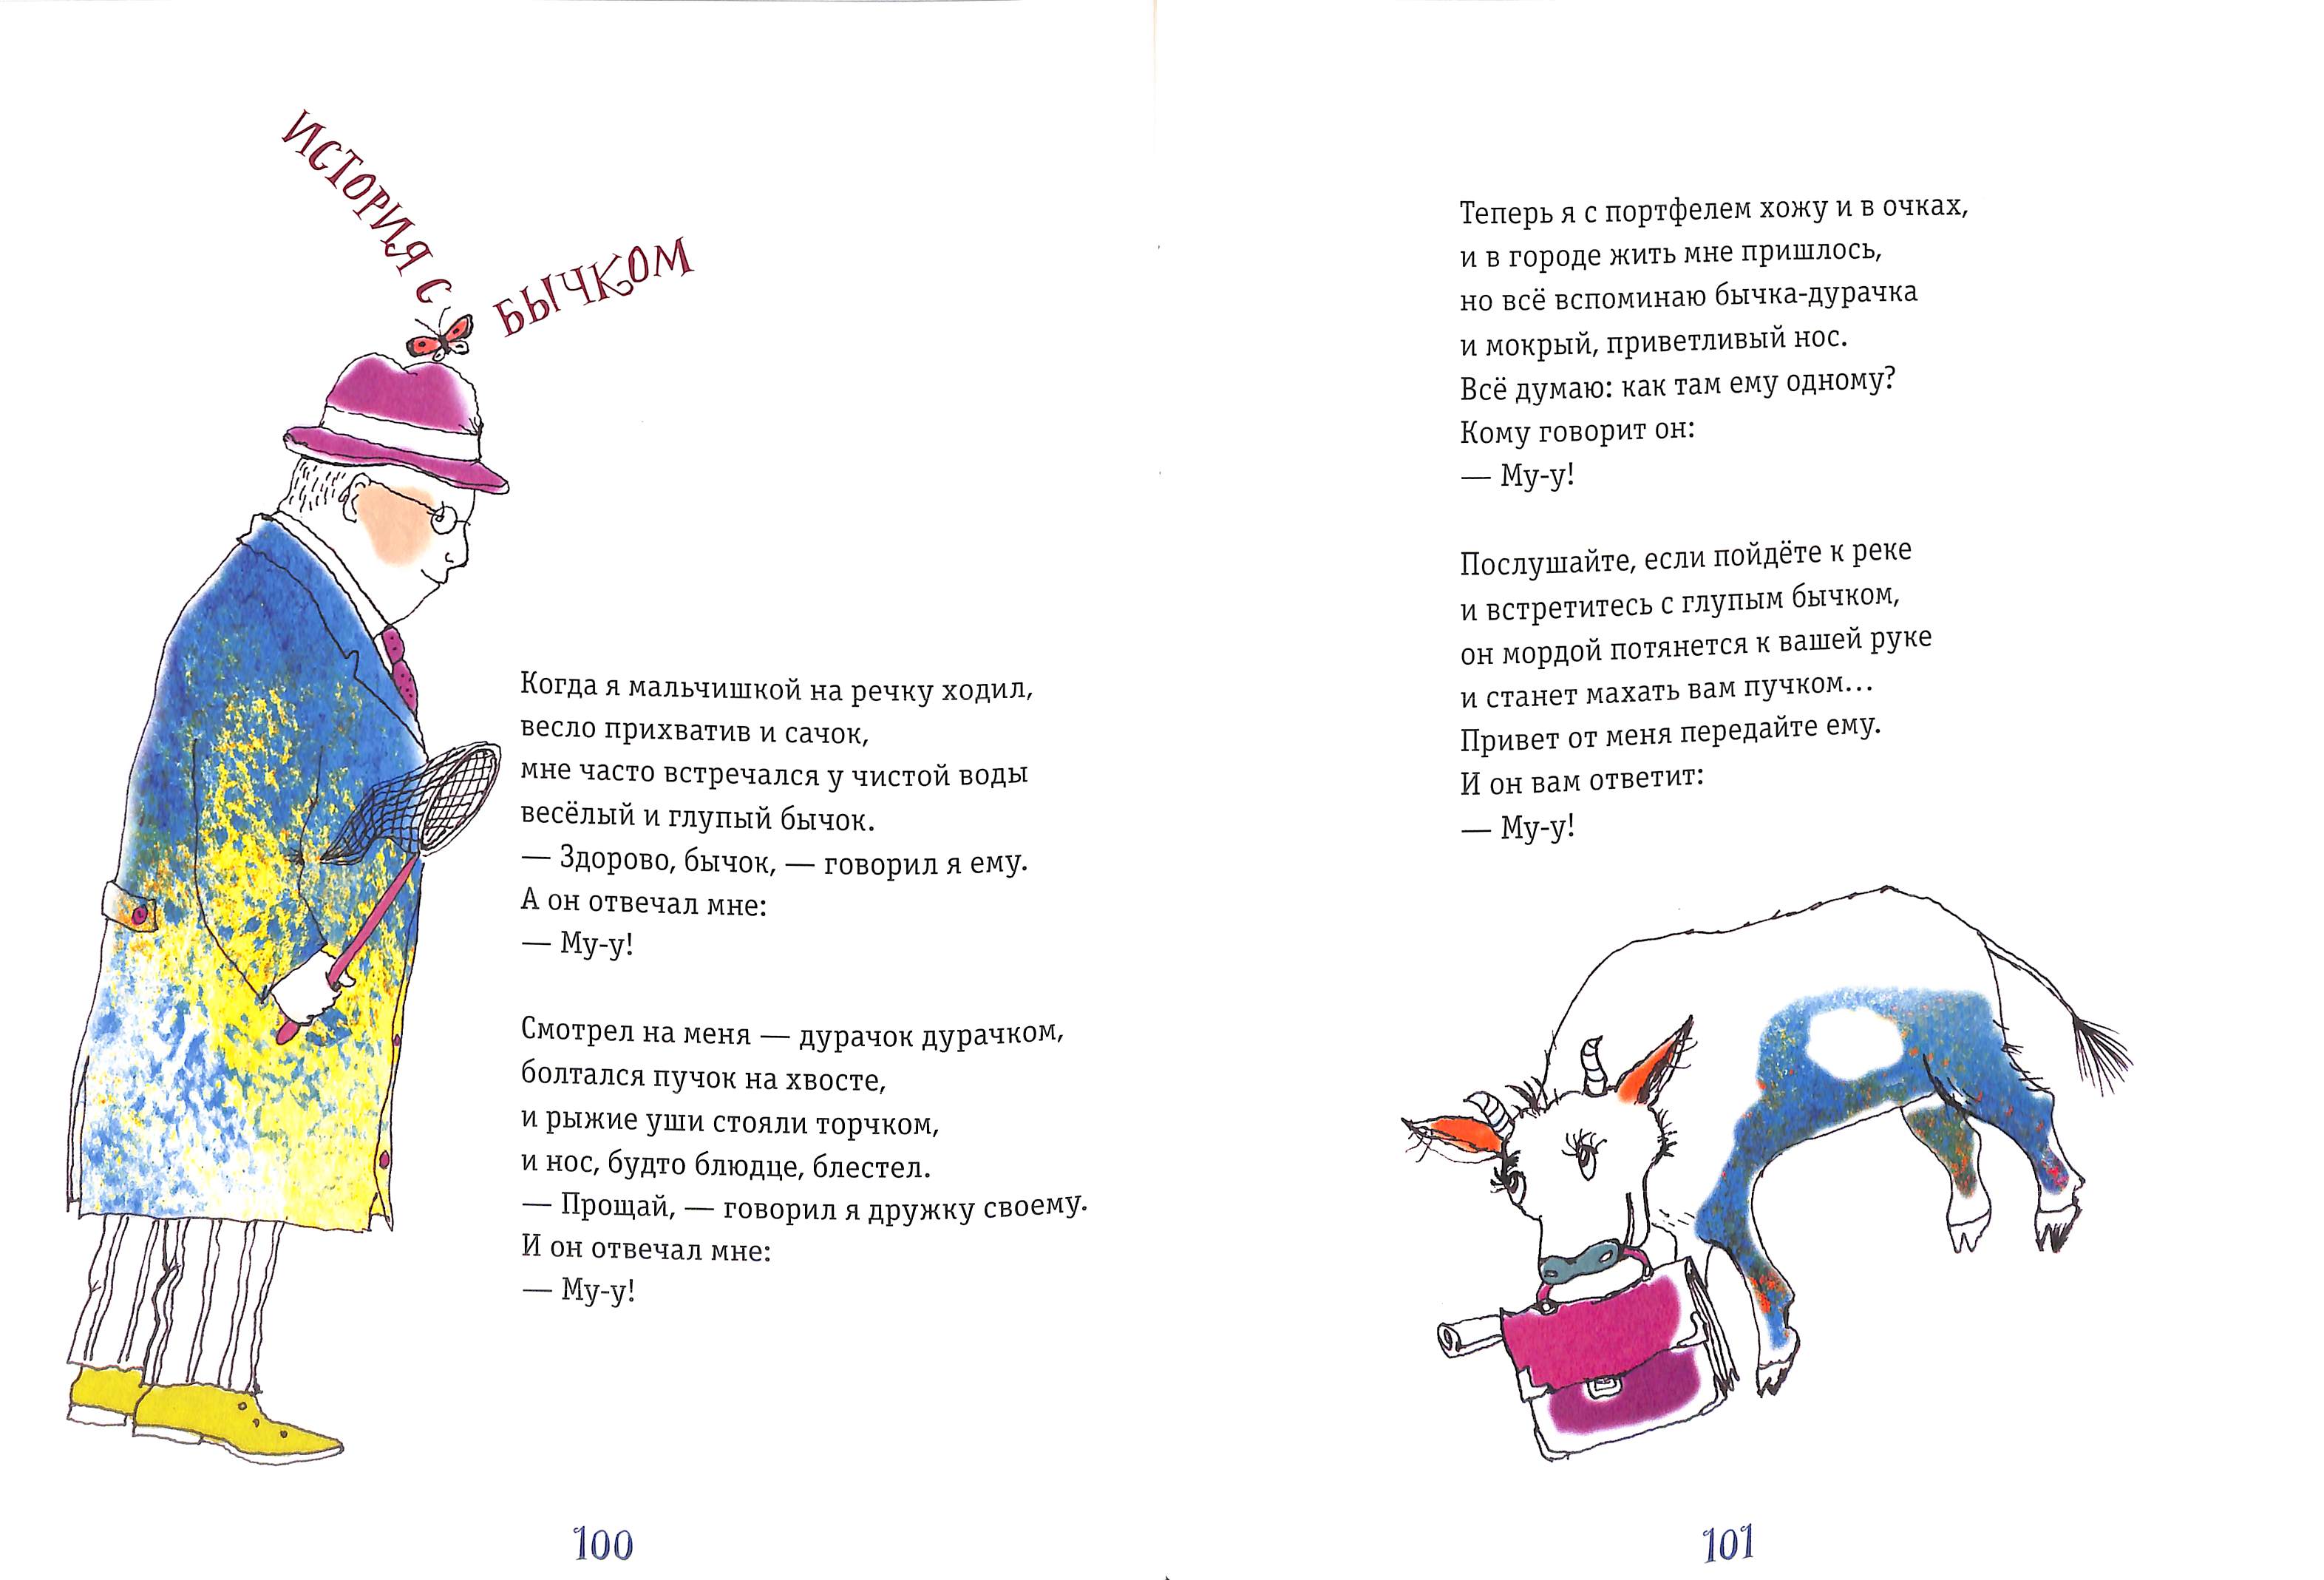 ИСТОРИЯ С
БЫЧКОМ
Когда я мальчишкой на речку ходил,
весло прихватив и сачок,
мне часто встречался у чистой воды
весёлый и глупый бычок.
— Здорово, бычок, — говорил я ему.
А он отвечал мне:
— Му-у!
Смотрел на меня — дурачок дурачком,
болтался пучок на хвосте,
и рыжие уши стояли торчком,
и нос, будто блюдце, блестел.
— Прощай, — говорил я дружку своему.
И он отвечал мне:
— Му-у!
100
Теперь я с портфелем хожу и в очках,
и в городе жить мне пришлось,
но всё вспоминаю бычка-дурачка
и мокрый, приветливый нос.
Всё думаю: как там ему одному?
Кому говорит он:
— Му-у!
Послушайте, если пойдёте к реке
и встретитесь с глупым бычком,
он мордой потянется к вашей руке
и станет махать вам пучком...
Привет от меня передайте ему.
И он вам ответит:
— Му-у!
101